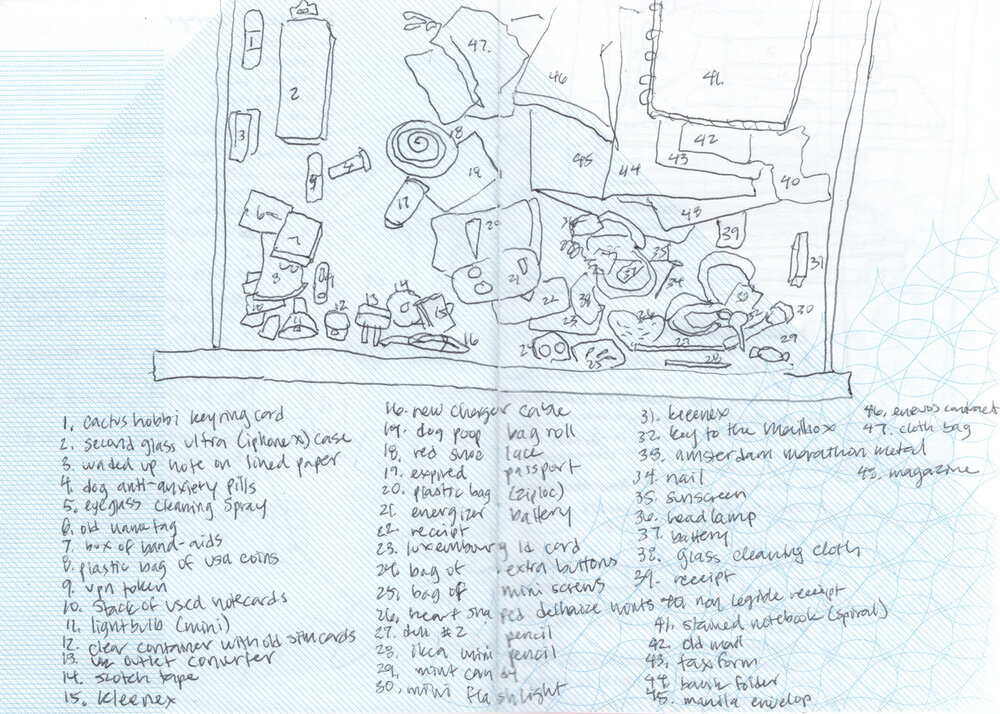 1
2
3
4
9
6
7
8
11
12
13
14
15
16
17
18
19
20
21
22
23
24
25
26
27
28
29
30
31
32
33
34
35
36
37
38
39
40
41.
42
43
44
45
46
47.
48
1. cactus hobbi keyring card
2. second glass ultra (iphone x) case
3. waded up note on lined paper
4. dog anti-anxiety pills
5. eyeglass cleaning spray
6. old nametag
7. box of band-aids
8. plastic bag of usa coins
9. vpn token
10. stack of used notecards
11. lightbulb (mini)
12. clear container with old simcards
13. outlet converter
14. scotch tape
15. kleenex
16. new charger cable
17. dog poop bag roll
18. red shoe lace
19. expired passport
20. plastic bag (ziploc)
21. energizer battery
22. receipt
23. luxembourg id card
24. bag of extra buttons
25. bag of mini screws
26. heart shaped delhaize
27. dull #2 pencil
28. ikea mini pencil
29. mint candy
30. mini flashlight
31. kleenex
32. key to the mailbox
33. amsterdam marathon metal
34. nail
35. sunscreen
36. headlamp
37. battery
38. glass cleaning cloth
39. receipt
40. non legible receipt
41. stained notebook (spiral)
42. old mail
43. tax form
44. bank folder
45. manila envelop
46. contract
47. cloth bag
48. magazine